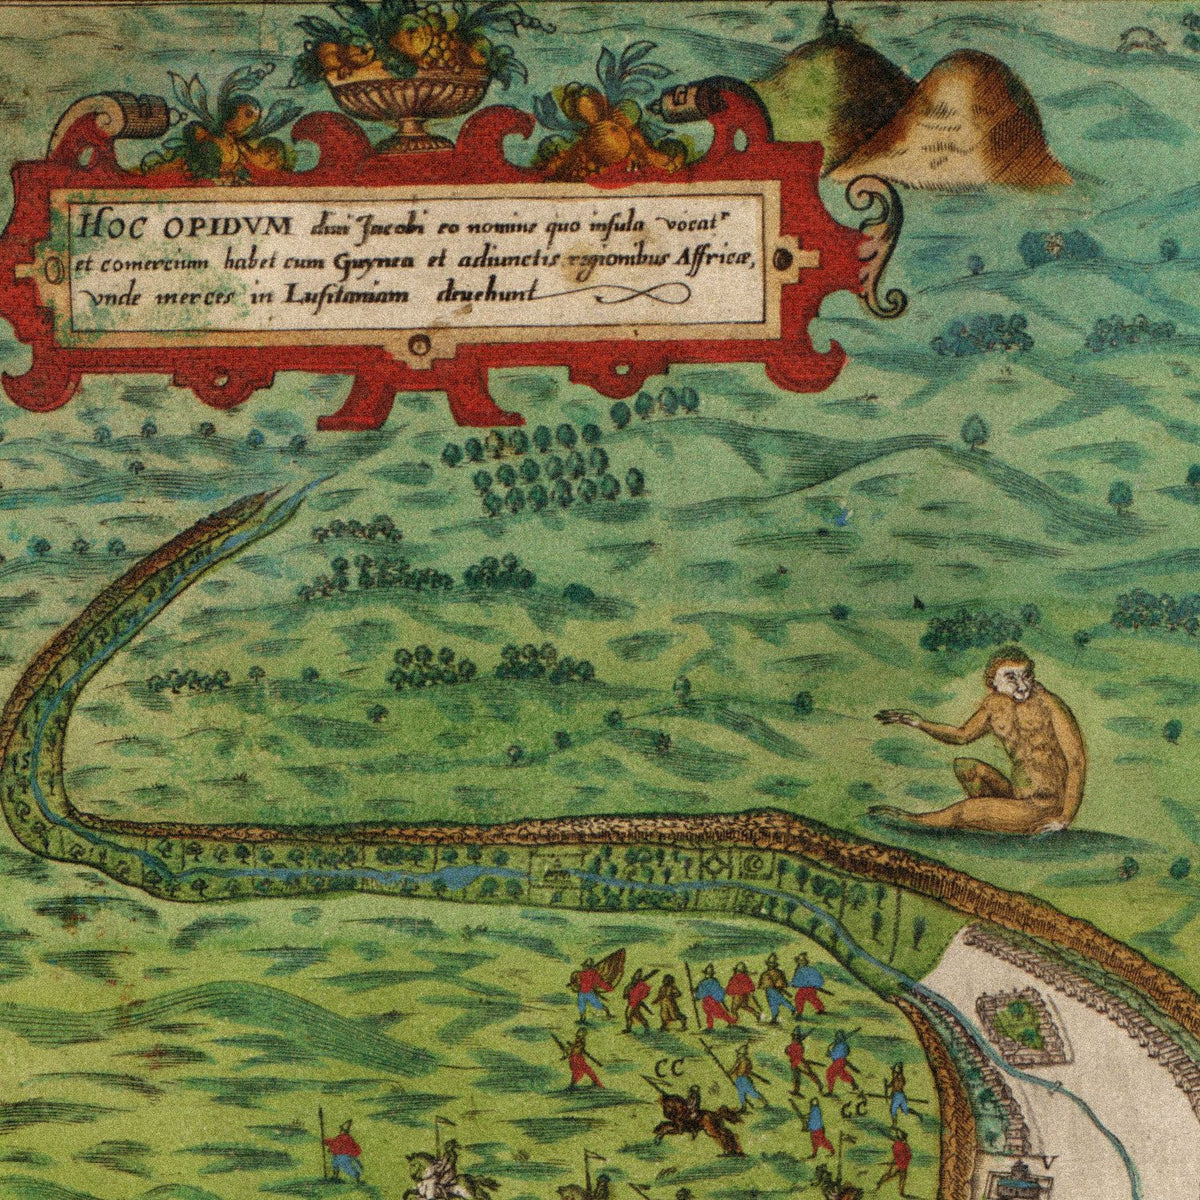 HOC OPIDVM diui Jacobi eo nomine quo insula vocatr
et comercium habet cum Guynea et adiunctis regionibus Affricæ,
vnde merces in Lusitaniam deuehunt
CC
CC
V